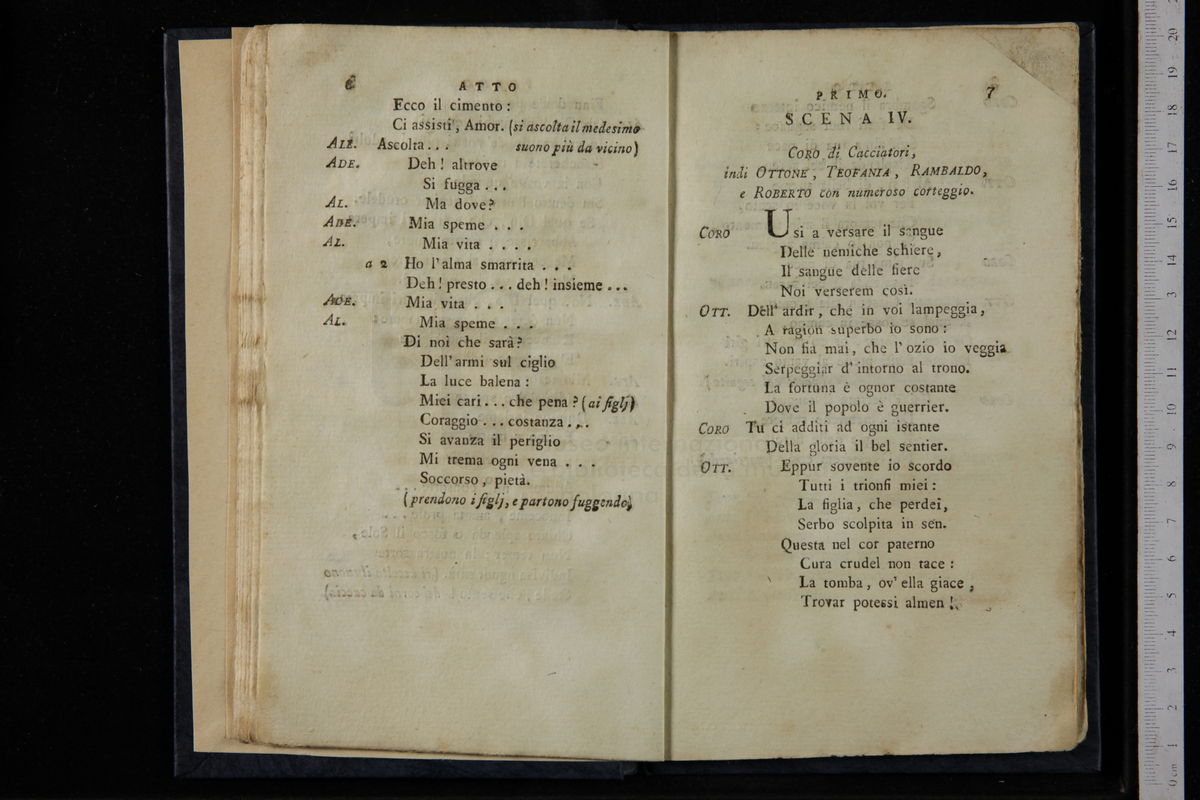 6 ATTO
Ecco il cimento :
Ci assisti, Amor. (si ascolta il medesimo
ALE. Ascolta . . . suono più da vicino)
ADE. Deh ! altrove
Si fugga . . .
AL. Ma dove?
ADE. Mia speme . . .
AL. Mia vita . . . .
a 2 Ho l'alma smarrita . . .
Deh ! presto . . . deh ! insieme . . .
ADE. Mia vita . . .
AL. Mia speme . . .
Di noi che sarà?
Dell'armi sul ciglio
La luce balena :
Miei cari . . . che pena ? (ai figlj)
Coraggio . . . costanza . . .
Si avanza il periglio
Mi trema ogni vena . . .
Soccorso, pietà.
(prendono i figlj, e partono fuggendo)
PRIMO. 7
SCENA IV.
CORO di Cacciatori,
indi OTTONE, TEOFANIA, RAMBALDO,
e ROBERTO con numeroso corteggio.
CORO Usi a versare il sangue
Delle nemiche schiere,
Il sangue delle fiere
Noi verserem così.
OTT. Dell' ardir, che in voi lampeggia,
A ragion superbo io sono :
Non fia mai, che l'ozio io veggia
Serpeggiar d'intorno al trono.
La fortuna è ognor costante
Dove il popolo è guerrier.
CORO Tu ci additi ad ogni istante
Della gloria il bel sentier.
OTT. Eppur sovente io scordo
Tutti i trionfi miei :
La figlia, che perdei,
Serbo scolpita in sen.
Questa nel cor paterno
Cura crudel non tace :
La tomba, ov' ella giace,
Trovar potessi almen !